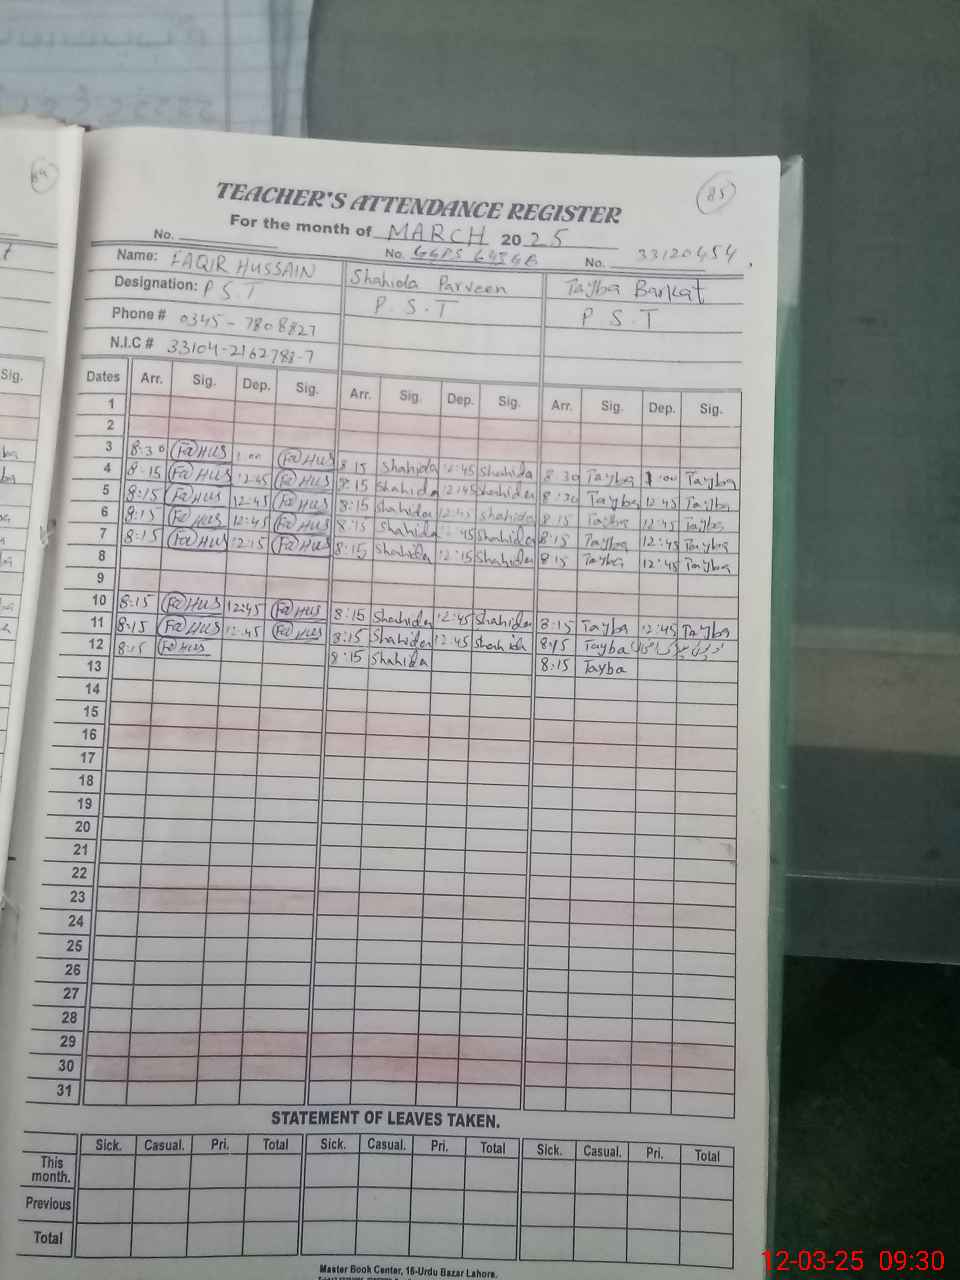 TEACHER'S ATTENDANCE REGISTER
85
For the month of MARCH 2025
No. No. GGPS No. 33120454
Name: FAQIR HUSSAIN Shahida Parveen Tayba Barkat
Designation: P S T P. S. T P S T
Phone # 0345-7808827
N.I.C # 33104-2162783-7
Dates Arr. Sig. Dep. Sig. Arr. Sig. Dep. Sig. Arr. Sig. Dep. Sig.
1
2
3 8:30 Fa HUS 1:00 Fa HUS 8:15 Shahida 12:45 Shahida 8:30 Tayba 1:00 Tayba
4 8:15 Fa HUS 12:45 Fa HUS 8:15 Shahida 12:45 Shahida 8:30 Tayba 12:45 Tayba
5 8:15 Fa HUS 12:45 Fa HUS 8:15 Shahida 12:45 Shahida 8:15 Tayba 12:45 Tayba
6 8:15 Fa HUS 12:45 Fa HUS 8:15 Shahida 12:45 Shahida 8:15 Tayba 12:45 Tayba
7 8:15 Fa HUS 12:15 Fa HUS 8:15 Shahida 12:15 Shahida 8:15 Tayba 12:45 Tayba
8
9
10 8:15 Fa HUS 12:45 Fa HUS 8:15 Shahida 12:45 Shahida 8:15 Tayba 12:45 Tayba
11 8:15 Fa HUS 12:45 Fa HUS 8:15 Shahida 12:45 Shahida 8:15 Tayba
12 8:15 Fa HUS 8:15 Shahida 8:15 Tayba
13
14
15
16
17
18
19
20
21
22
23
24
25
26
27
28
29
30
31
STATEMENT OF LEAVES TAKEN.
Sick. Casual. Pri. Total Sick. Casual. Pri. Total Sick. Casual. Pri. Total
This month.
Previous
Total
Master Book Center, 16-Urdu Bazar Lahore.
12-03-25 09:30